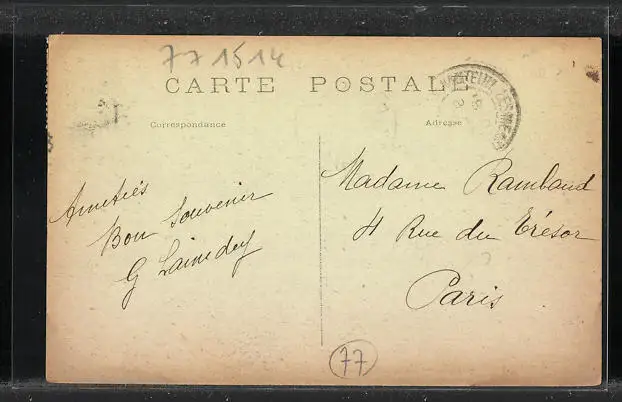 77 1514
CARTE POSTALE
Correspondance
Adresse
Amitiés
Bon Souvenir
G
Madame Rambaud
4 Rue du Trésor
Paris
77